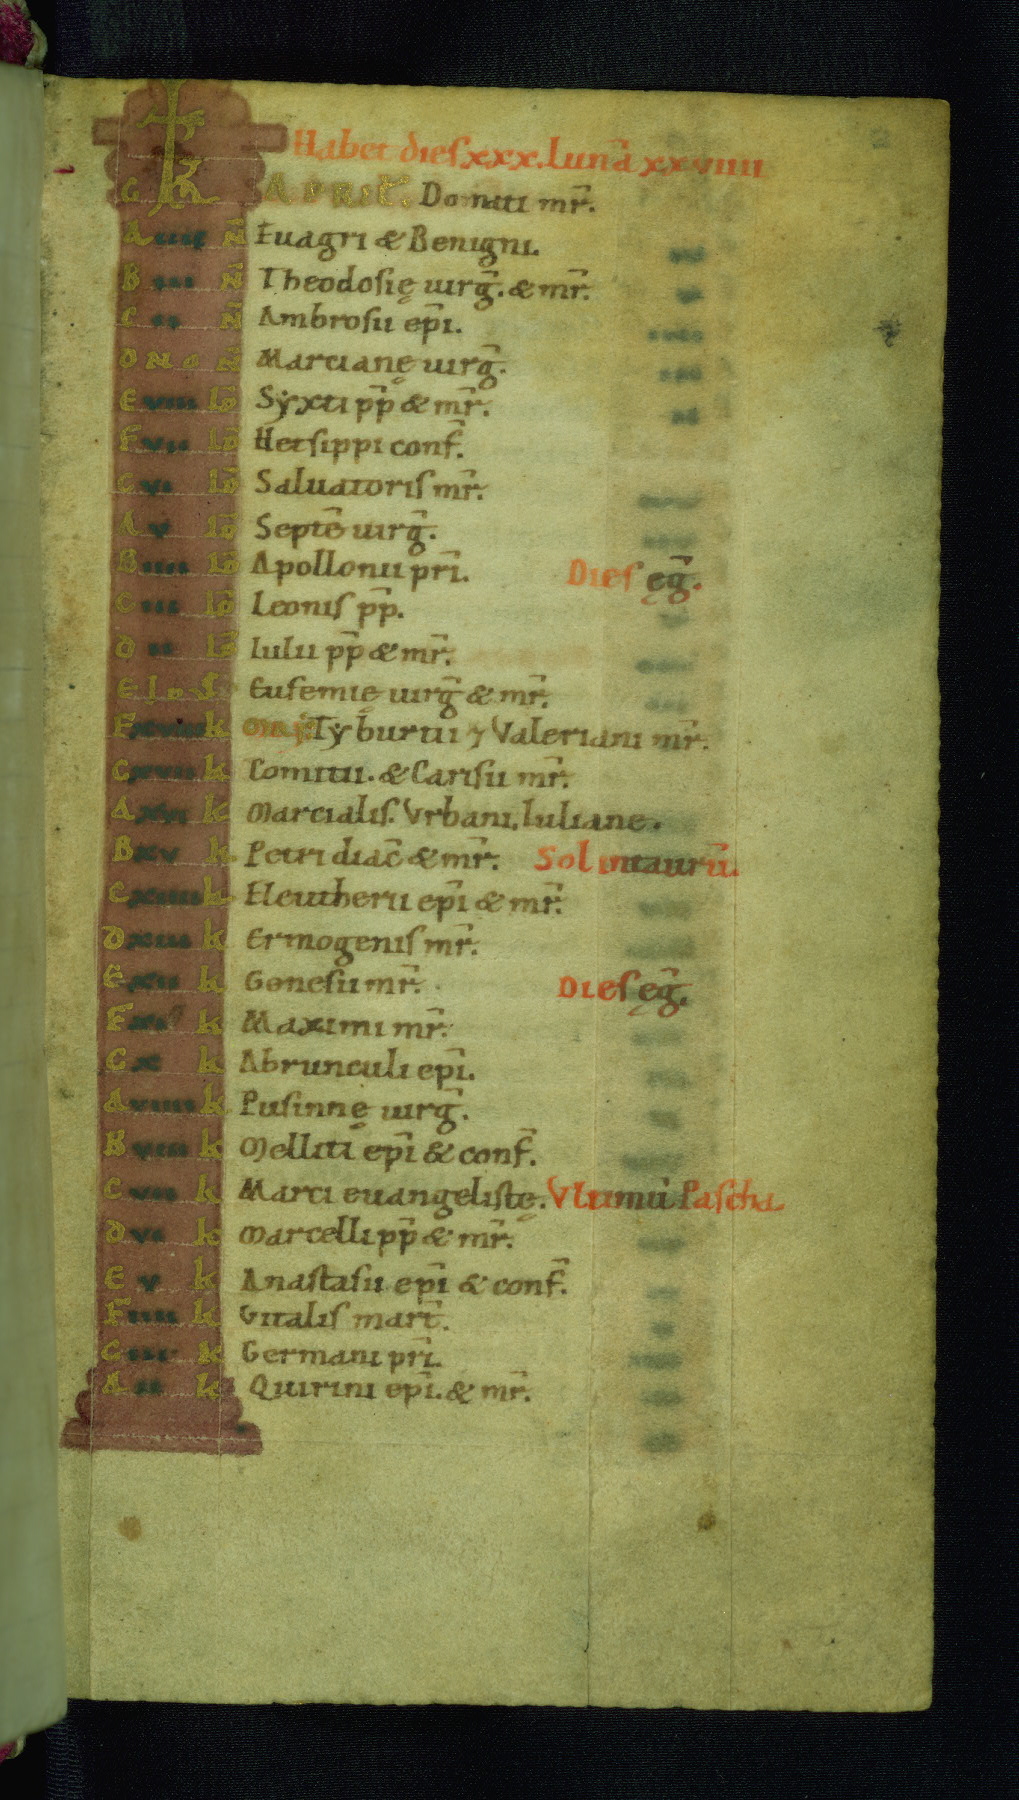 Habet dies xxx. Lunā xxviiii
G KL APRIL. Donati mr̄.
A iiii N̄ Euagri & Benigni.
B iii N̄ Theodosię uirḡ. & mr̄.
C ii N̄ Ambrosii epī.
D NO N̄ Marcianę uirḡ.
E viii id̄ Syxti pp̄ & mr̄.
F vii id̄ Hetsippi conf̄.
G vi id̄ Saluatoris mr̄.
A v id̄ Septē uirḡ.
B iiii id̄ Apollonii prī. Dies ęḡ.
C iii id̄ Leonis pp̄.
D ii id̄ Iulii pp̄ & mr̄.
E Idus Eufemię uirḡ & mr̄.
F xviii k Mai Tyburtii ⁊ Valeriani mr̄.
G xvii k Tomitii. & Carisii mr̄.
A xvi k Marcialis. Vrbani. Iuliane.
B xv k Petri diac̄ & mr̄. Sol in taurū.
C xiiii k Eleutherii epī & mr̄.
D xiii k Ermogenis mr̄.
E xii k Gonesii mr̄. Dies ęḡ.
F xi k Maximi mr̄.
G x k Abrunculi epī.
A viiii k Pusinnę uirḡ.
B viii k Melliti epī & conf̄.
C vii k Marci euangelistę. Vltimū Pascha.
D vi k Marcelli pp̄ & mr̄.
E v k Anastasii epī & conf̄.
F iiii k Gitalis mart̄.
G iii k Germani prī.
A ii k Quirini epī. & mr̄.